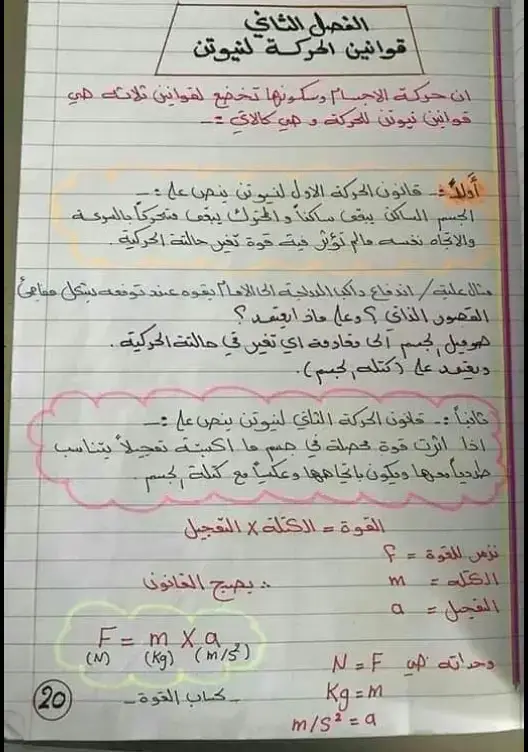 الفصل الثاني
قوانين الحركة لنيوتن
ان حركة الاجسام وسكونها تخضع لقوانين ثلاثه هي
قوانين نيوتن للحركة و هي كالاتي :-
أولاً :- قانون الحركة الاول لنيوتن ينص على :-
الجسم الساكن يبقى ساكناً و المتحرك يبقى متحركاً بالسرعة
والاتجاه نفسه مالم تؤثر فيه قوة تغير حالته الحركية .
مثال عليه / اندفاع راكب الدراجة الى الامام بقوه عند توقفه بشكل مفاجئ
القصور الذاتي ؟ وعلى ماذا يعتمد ؟
هو ميل الجسم الى مقاومة اي تغير في حالته الحركية .
ويعتمد على (كتلة الجسم) .
ثانياً :- قانون الحركة الثاني لنيوتن ينص على :-
اذا اثرت قوة محصلة في جسم ما اكسبته تعجيلاً يتناسب
طردياً معها ويكون باتجاهها وعكسياً مع كتلة الجسم .
القوة = الكتلة X التعجيل
نرمز للقوة = F
الكتله = m
∴ يصبح القانون
التعجيل = a
F = m X a
(N) (Kg) (m/s²)
وحداته هي N = F
Kg = m
m/s² = a
- حساب القوة -
20